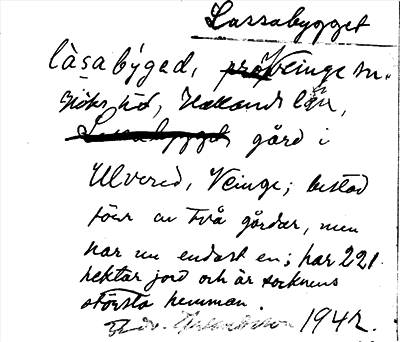 Lassabygget
làsabýged, Veinge sn.
Höks hd, Hallands län,
Lassabygget gård i
Ulvered, Veinge; bestod
förr av två gårdar, men
har nu endast en; har 221
hektar jord och är socknens
största hemman.
1942.